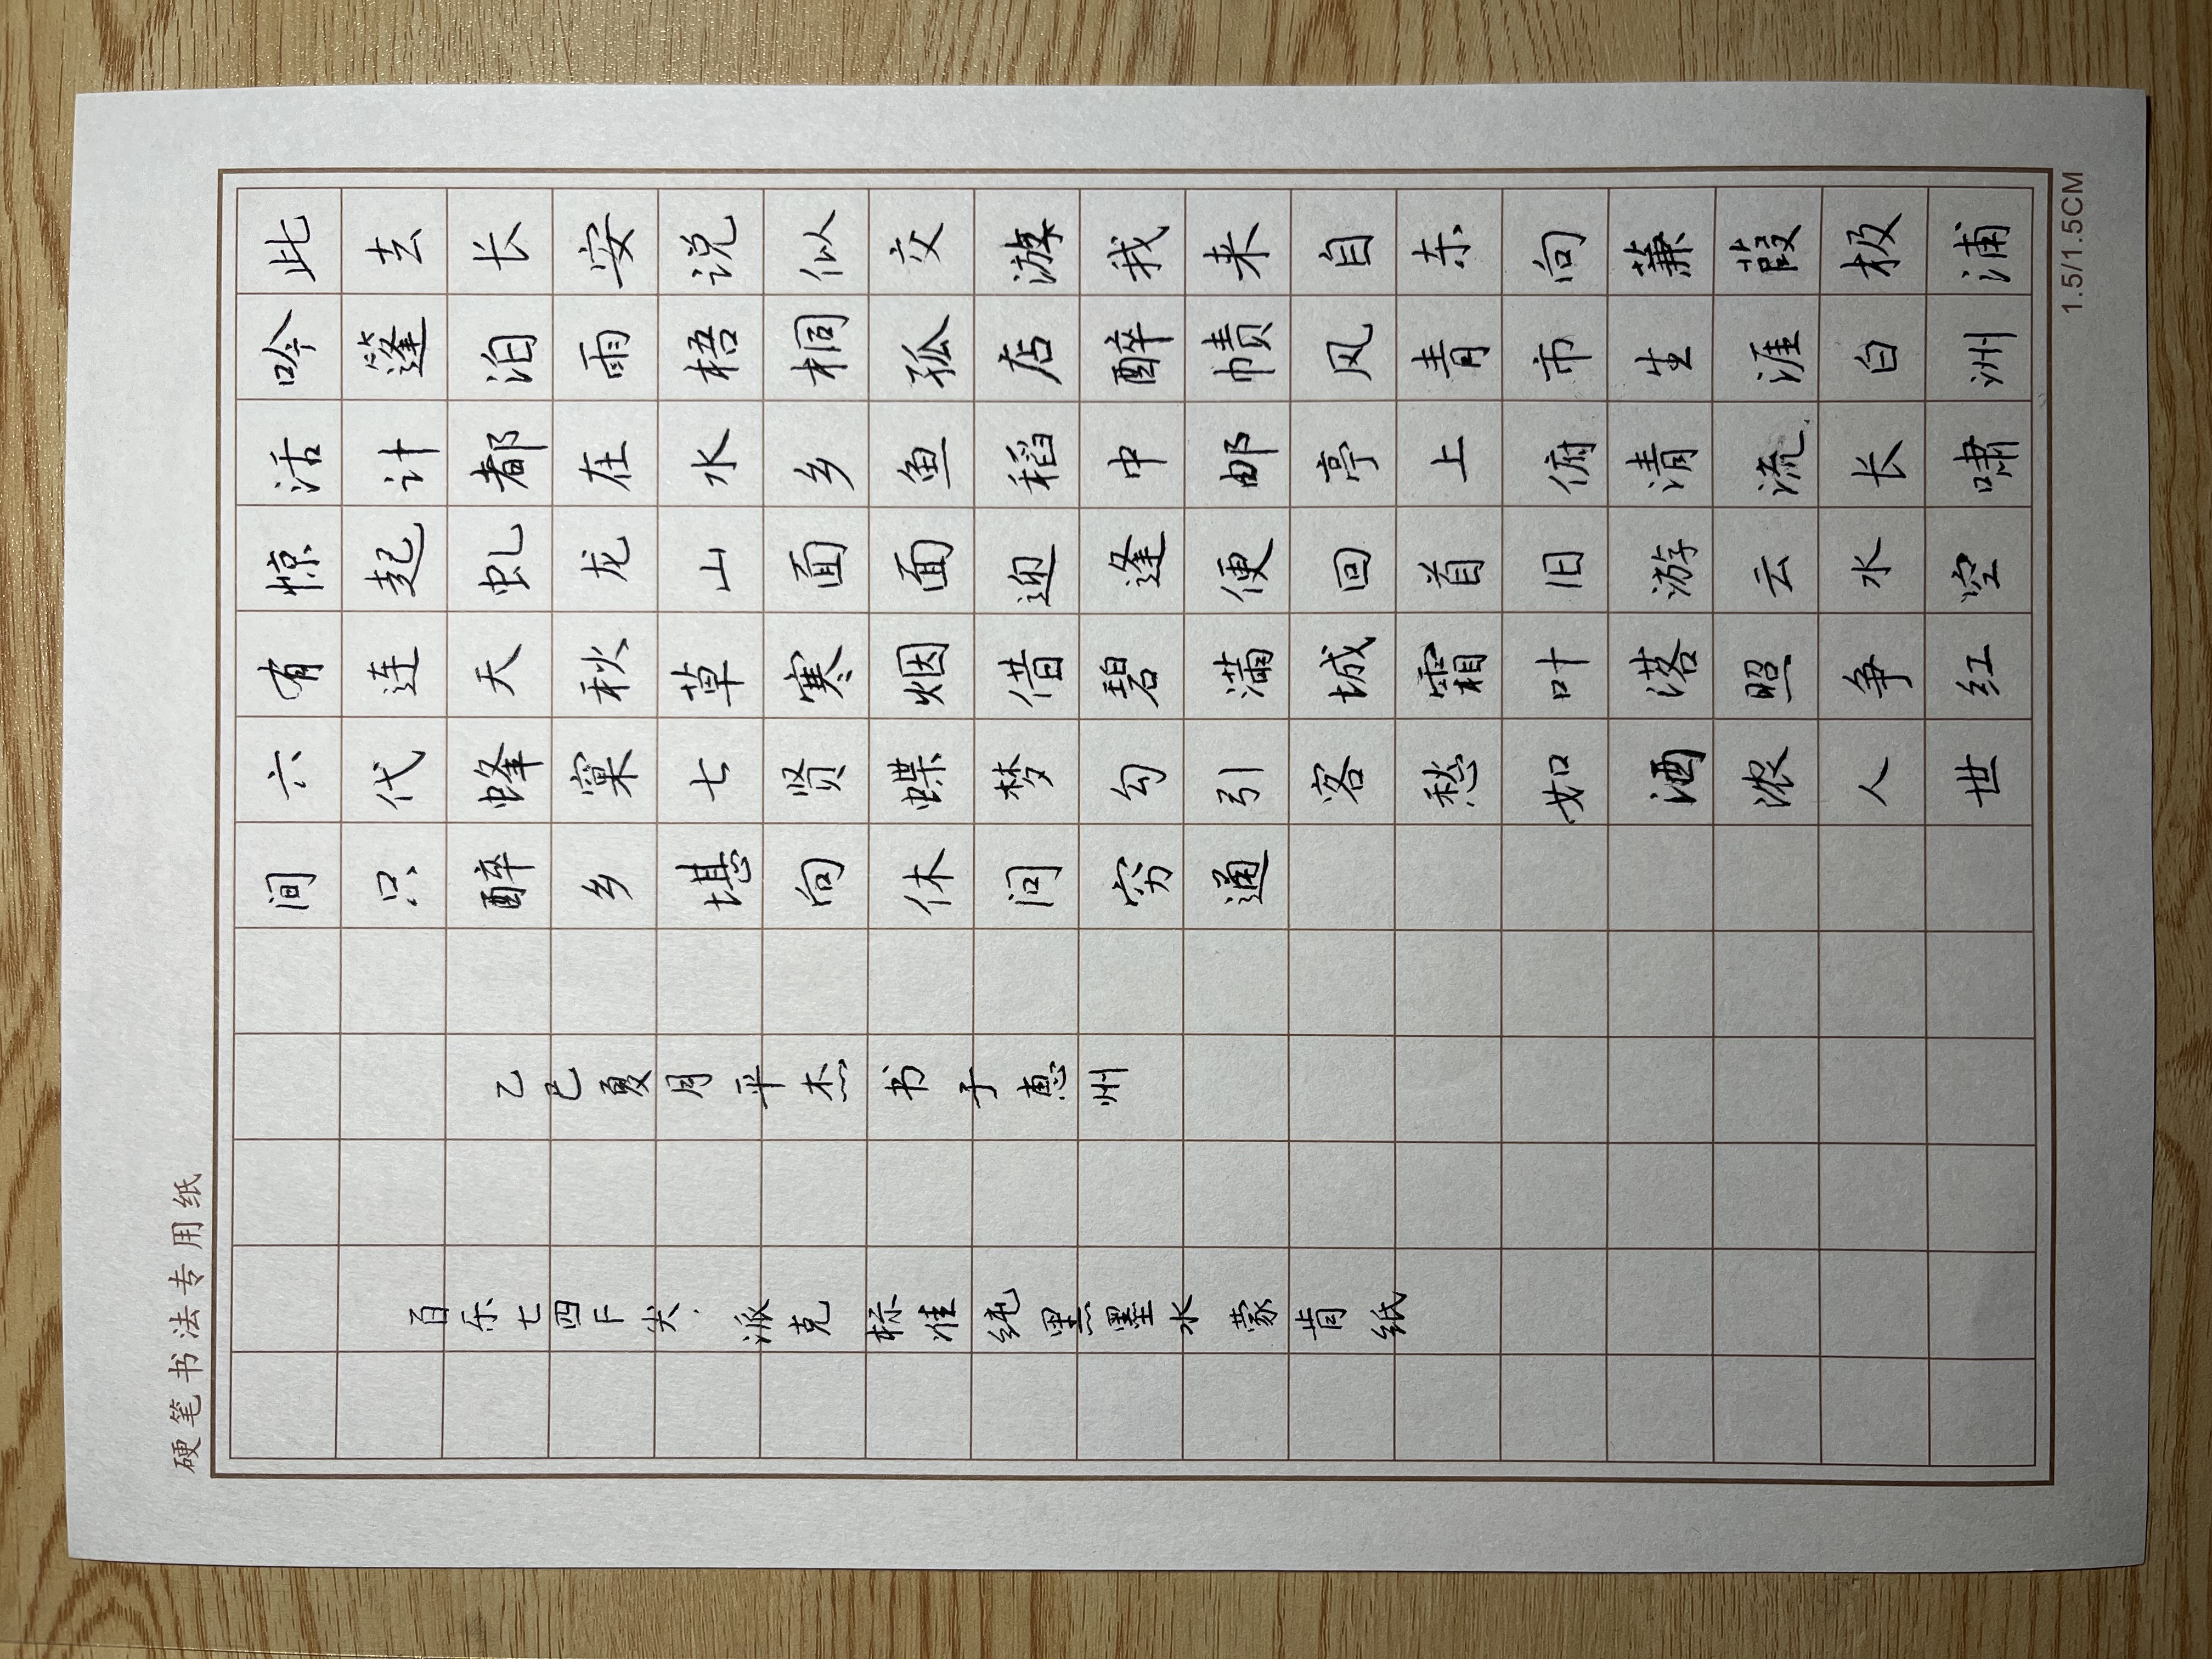 硬笔书法专用纸
此去长安说似交游我来自东向蒹葭极浦
吟篷泊雨梧桐孤店醉帻风青市生涯白洲
活计都在水乡鱼稻中邮亭上俯清流长啸
惊起虬龙山面面迎逢便回首旧游云水空
有连天秋草寒烟借碧满城霜叶落照争红
六代蜂窠七贤蝶梦勾引客愁如酒浓人世
间只醉乡堪向休问穷通
乙巳夏月平杰书于惠州
百乐七四F尖.派克标准纯黑墨水蒙肯纸
1.5/1.5CM